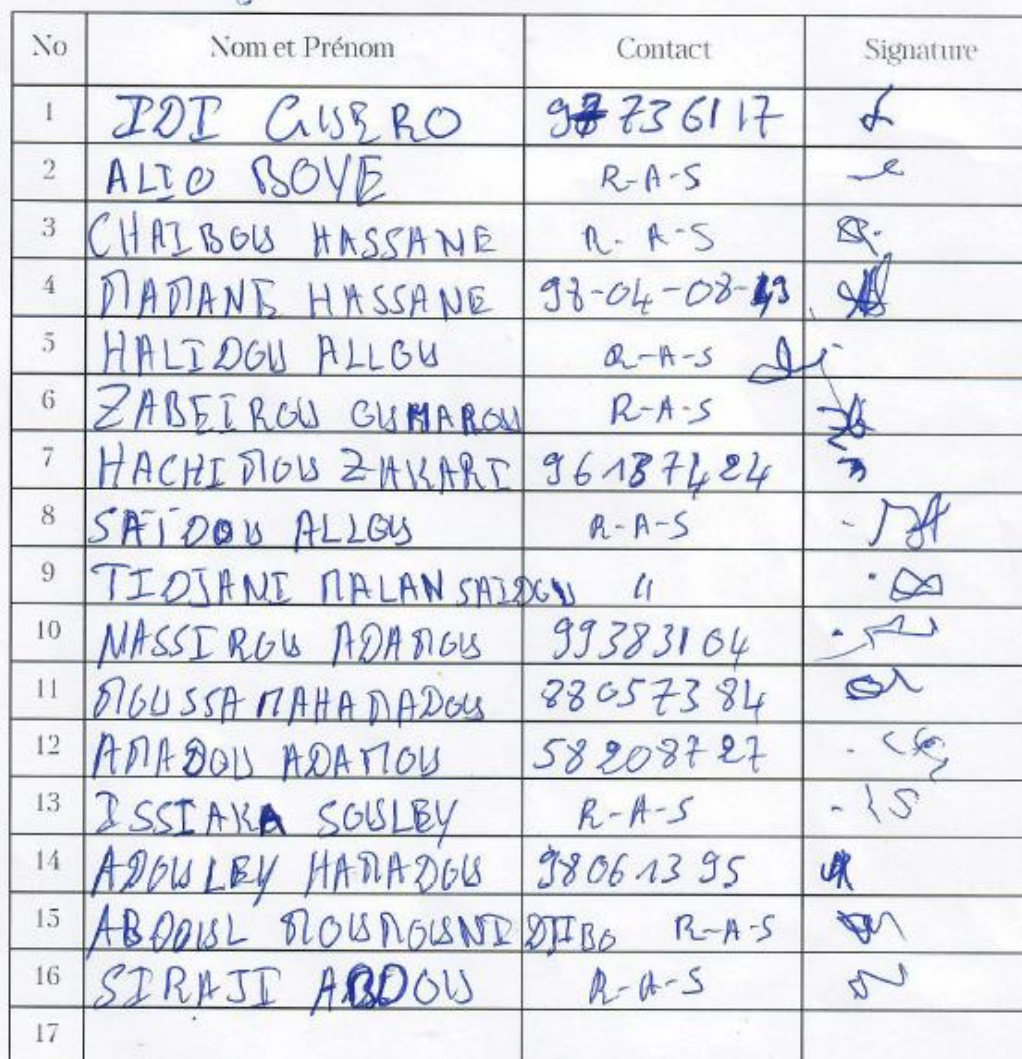 No Nom et Prénom Contact Signature
1 IDI GUERO 97736117
2 ALIO BOYE R-A-S
3 CHAIBOU HASSANE R-A-S
4 MAMANE HASSANE 98-04-08-
5 HALIDOU ALLOU R-A-S
6 ZABEIROU OUMAROU R-A-S
7 HACHIMOU ZAKARI 96137424
8 SAÏDOU ALLOU R-A-S
9 TIDJANI MALAN SAIDOU "
10 NASSIROU ADAMOU 99383104
11 MOUSSA MAHAMADOU 88057384
12 AMADOU ADAMOU 58208727
13 ISSIAKA SOULEY R-A-S
14 ADOULEY HAMADOU 98061395
15 ABDOUL MOUMOUNI DJIBO R-A-S
16 SIRAJI ABDOU R-A-S
17